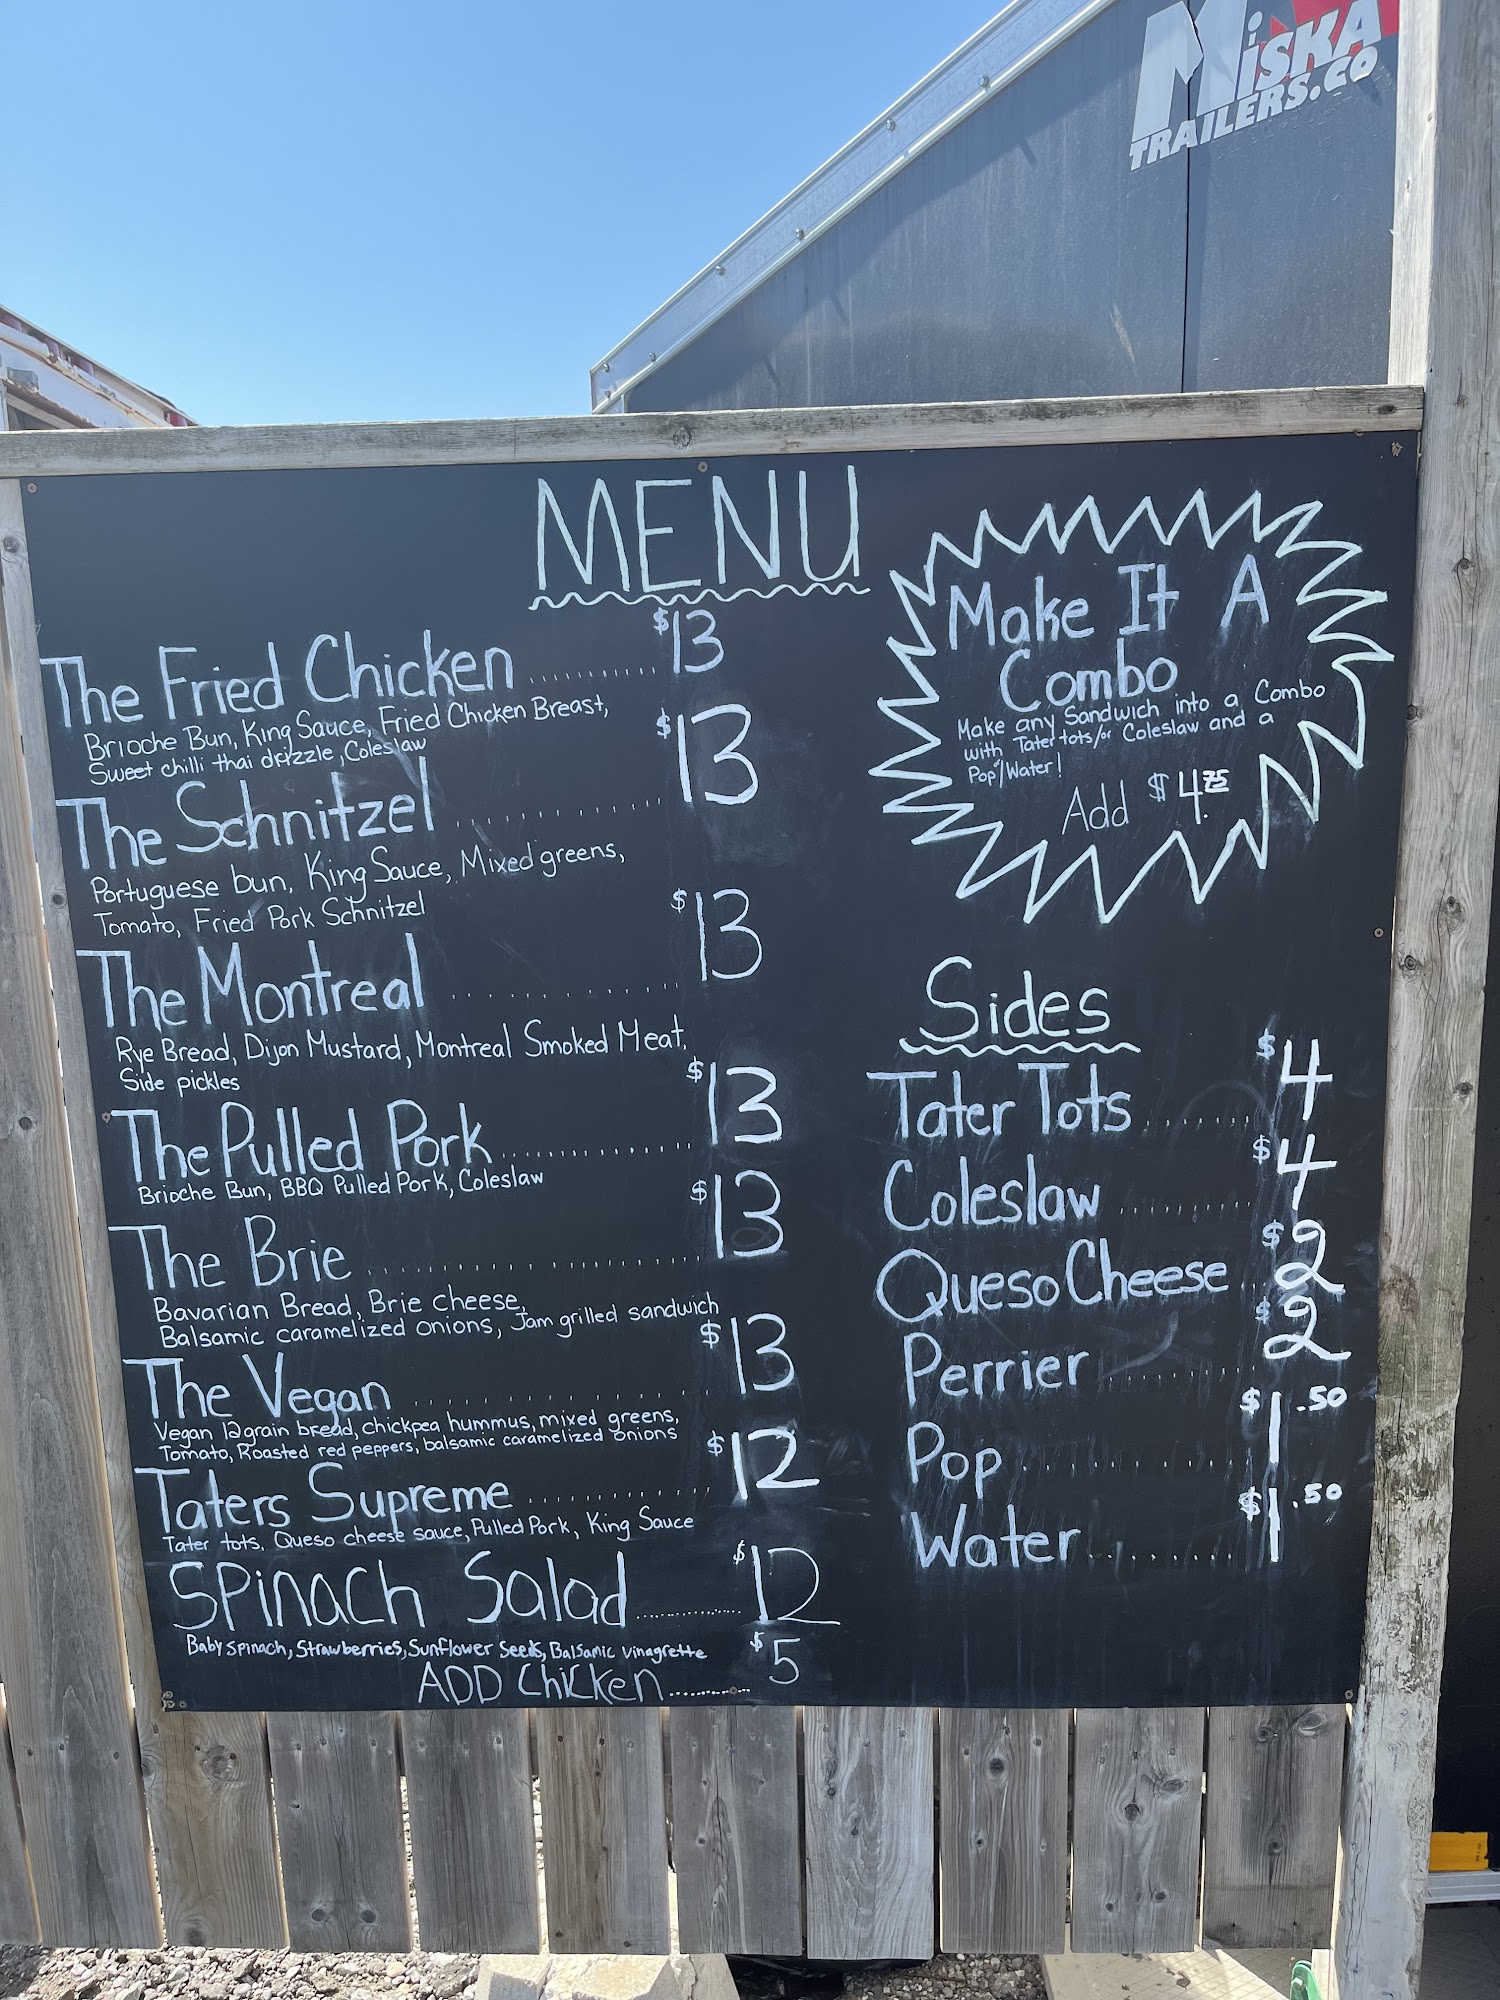 MiSKA
TRAILERS.CO
MENU
The Fried Chicken ........... $13
Brioche Bun, King Sauce, Fried Chicken Breast,
Sweet chilli thai drizzle, Coleslaw
The Schnitzel ........... $13
Portuguese bun, King Sauce, Mixed greens,
Tomato, Fried Pork Schnitzel
The Montreal ........... $13
Rye Bread, Dijon Mustard, Montreal Smoked Meat,
Side pickles
The Pulled Pork ........... $13
Brioche Bun, BBQ Pulled Pork, Coleslaw
The Brie ........... $13
Bavarian Bread, Brie cheese,
Balsamic caramelized onions, Jam grilled sandwich
The Vegan ........... $13
Vegan 12 grain bread, chickpea hummus, mixed greens,
Tomato, Roasted red peppers, balsamic caramelized onions
Taters Supreme ........... $12
Tater tots, Queso cheese sauce, Pulled Pork, King Sauce
Spinach Salad ........... $12
Baby Spinach, Strawberries, Sunflower Seeds, Balsamic Vinagrette
ADD Chicken ........... $5
Make It A
Combo
Make any Sandwich into a Combo
with Tater tots/or Coleslaw and a
Pop/Water!
Add $4.75
Sides
Tater Tots ........ $4
Coleslaw ........ $4
Queso Cheese .. $2
Perrier ........ $2
Pop ........ $1.50
Water ........ $1.50